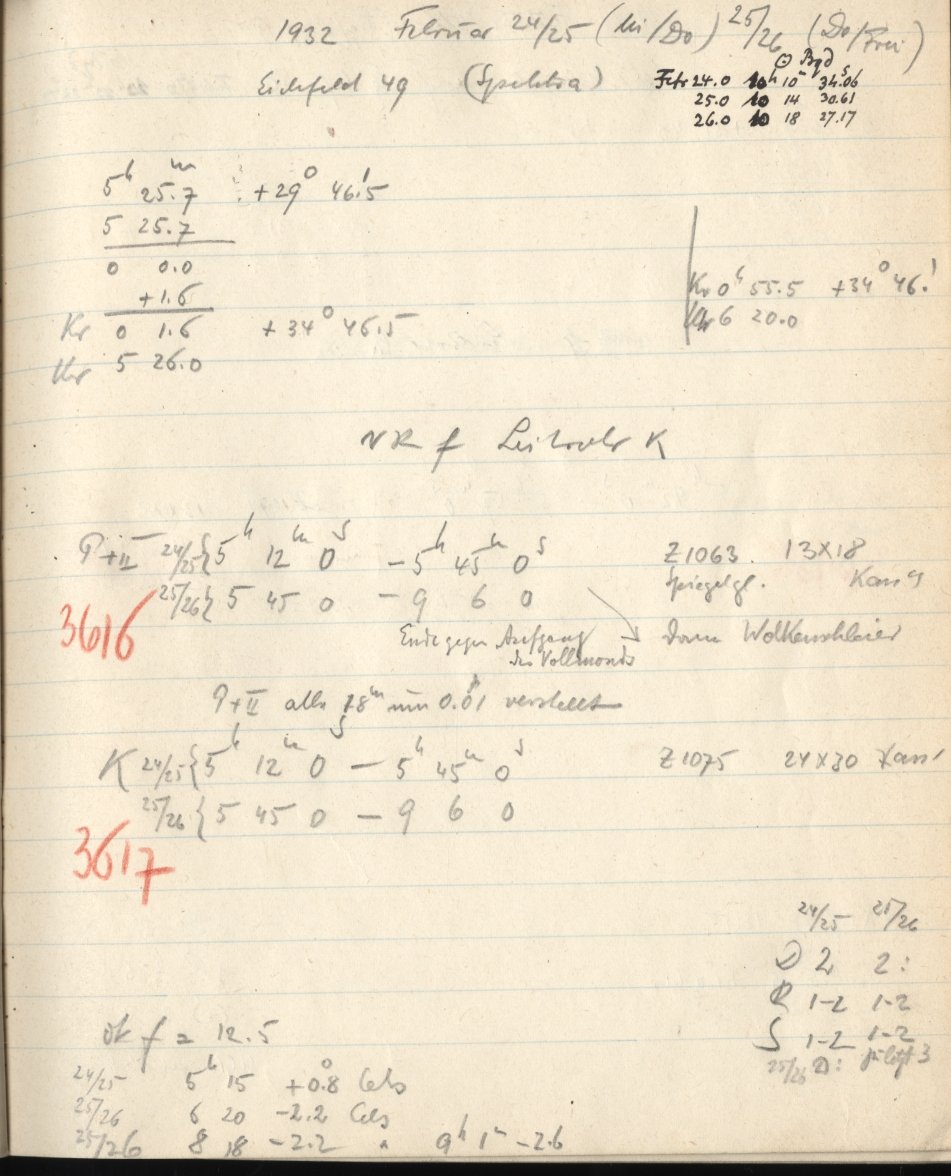 1932 Februar 24/25 (Mi/Do) 25/26 (Do/Frei)
Eichfeld 49 (Spektra)
☉ Bgd
Febr 24.0 10h 10m 34.06s
25.0 10 14 30.61
26.0 10 18 27.17
5h 25.7m +29° 46.'5
5 25.7
0 0.0
+1.6
Kr 0 1.6 +34° 46.5
Uhr 5 26.0
Kr 0h 55.5 +34° 46.'
Uhr 6 20.0
NR f Leitrohr K
P+II 24/25 { 5h 12m 0s – 5h 45m 0s Z1063. 13X18
Spiegelgl. Kass
25/26 { 5 45 0 – 9 6 0
3616
Ende gegen Aufgang des Vollmonds
dann Wolkenschleier
P+II alle 18m um 0.01 verstellt
K 24/25 { 5h 12m 0s – 5h 45m 0s Z1075 24X30 Kass
25/26 { 5 45 0 – 9 6 0
3617
24/25 25/26
D 2 2:
R 1-2 1-2
S 1-2 1-2
25/26 D: zuletzt 3
Ok f = 12.5
24/25 5h 15 +0.°8 Cels
25/26 6 20 -2.2 Cels
25/26 8 18 -2.2 " 9h 1m -2.6